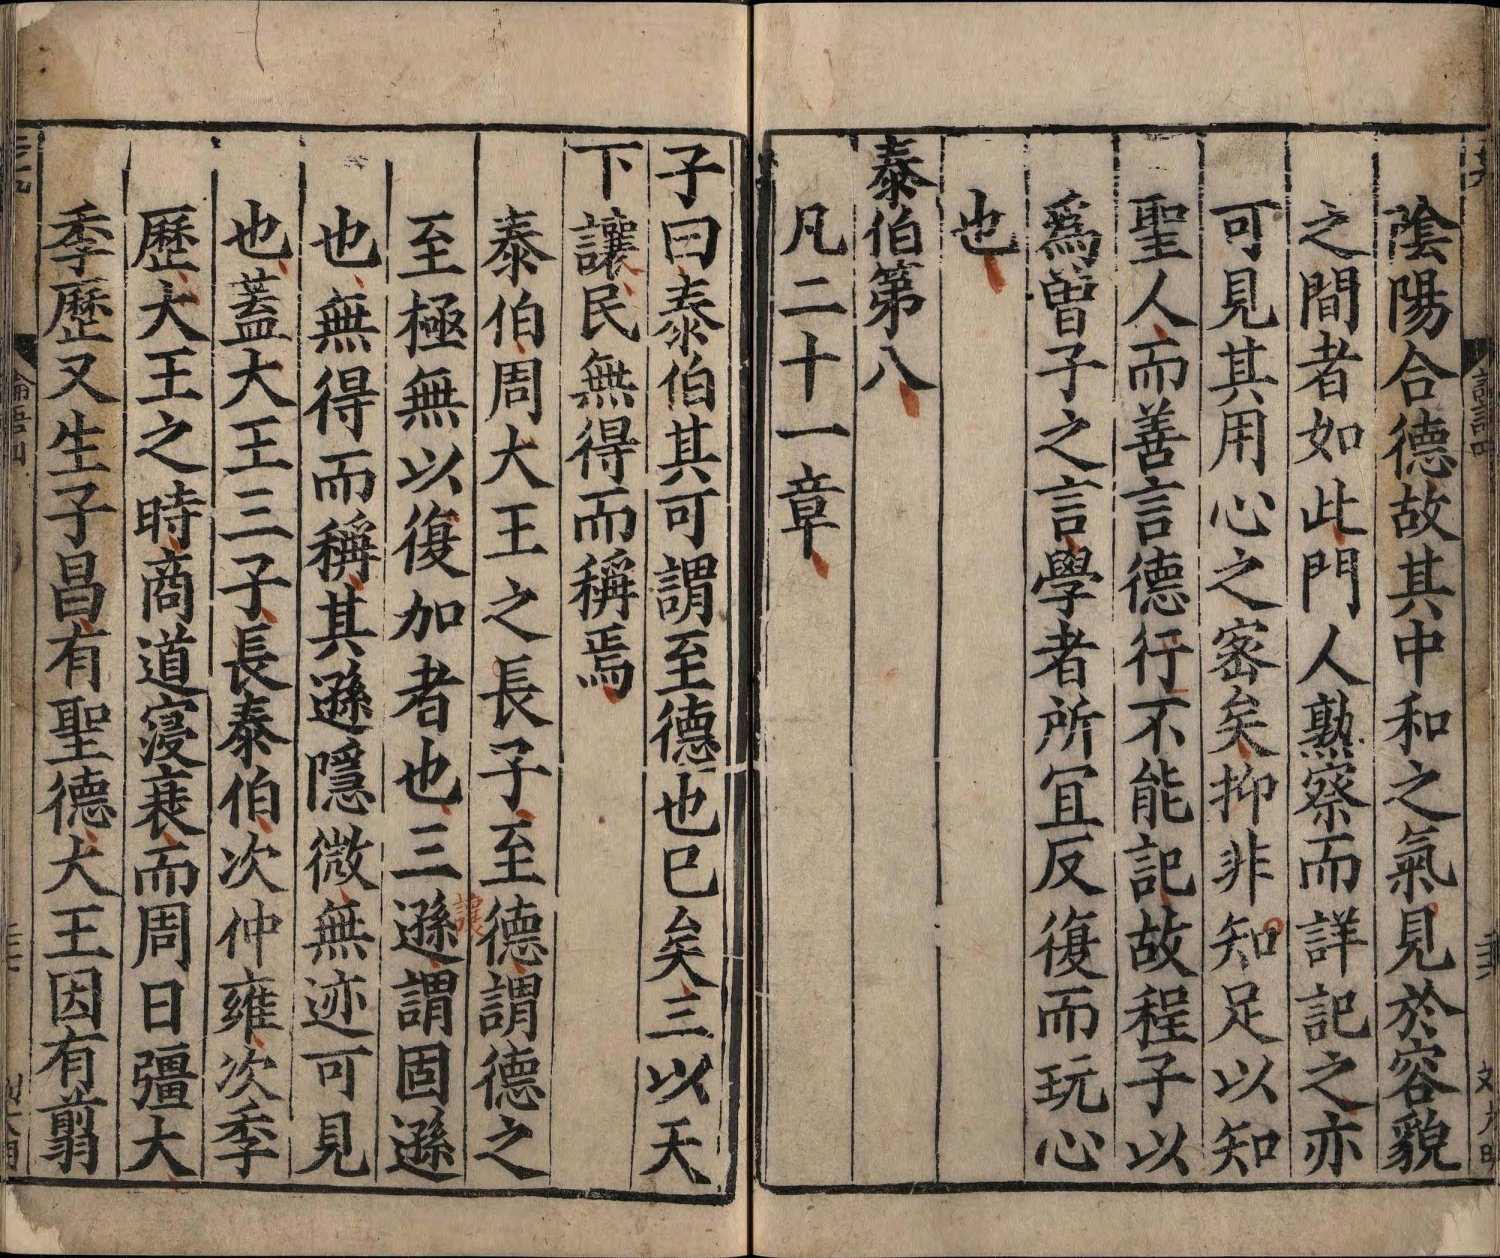 陰陽合德故其中和之氣見於容貌
之間者如此門人熟察而詳記之亦
可見其用心之宻矣抑非知足以知
聖人而善言德行不能記故程子以
爲曽子之言學者所冝反復而玩心
也
泰伯第八
凡二十一章
子曰泰伯其可謂至德也巳矣三以天
下讓民無得而稱焉
泰伯周大王之長子至德謂德之
至極無以復加者也三遜謂固遜
讓
也無得而稱其遜隱微無迹可見
也蓋大王三子長泰伯次仲雍次季
歷大王之時商道寖衰而周日彊大
季歷又生子昌有聖德大王因有翦
論語四